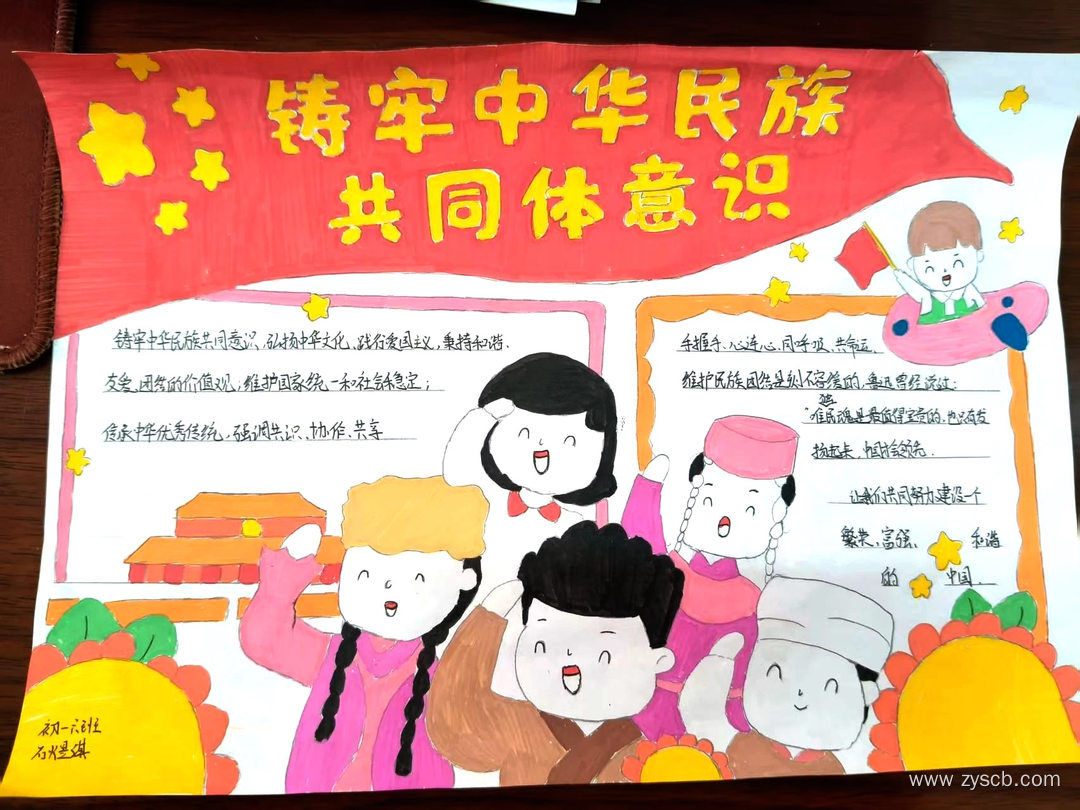 铸牢中华民族
共同体意识
铸牢中华民族共同意识、弘扬中华文化、践行爱国主义,秉持和谐、
友爱、团结的价值观;维护国家统一和社会稳定;
传承中华优秀传统,强调共识、协作、共享
手握手、心连心、同呼吸、共命运、
维护民族团结是刻不容缓的,鲁迅曾经说过:
"唯民魂是最值得宝贵的,也只有发
扬起来,中国才会领先.
让我们共同努力建设一个
繁荣、富强、 和谐
的 中国.
初一六班
www.zyscb.com